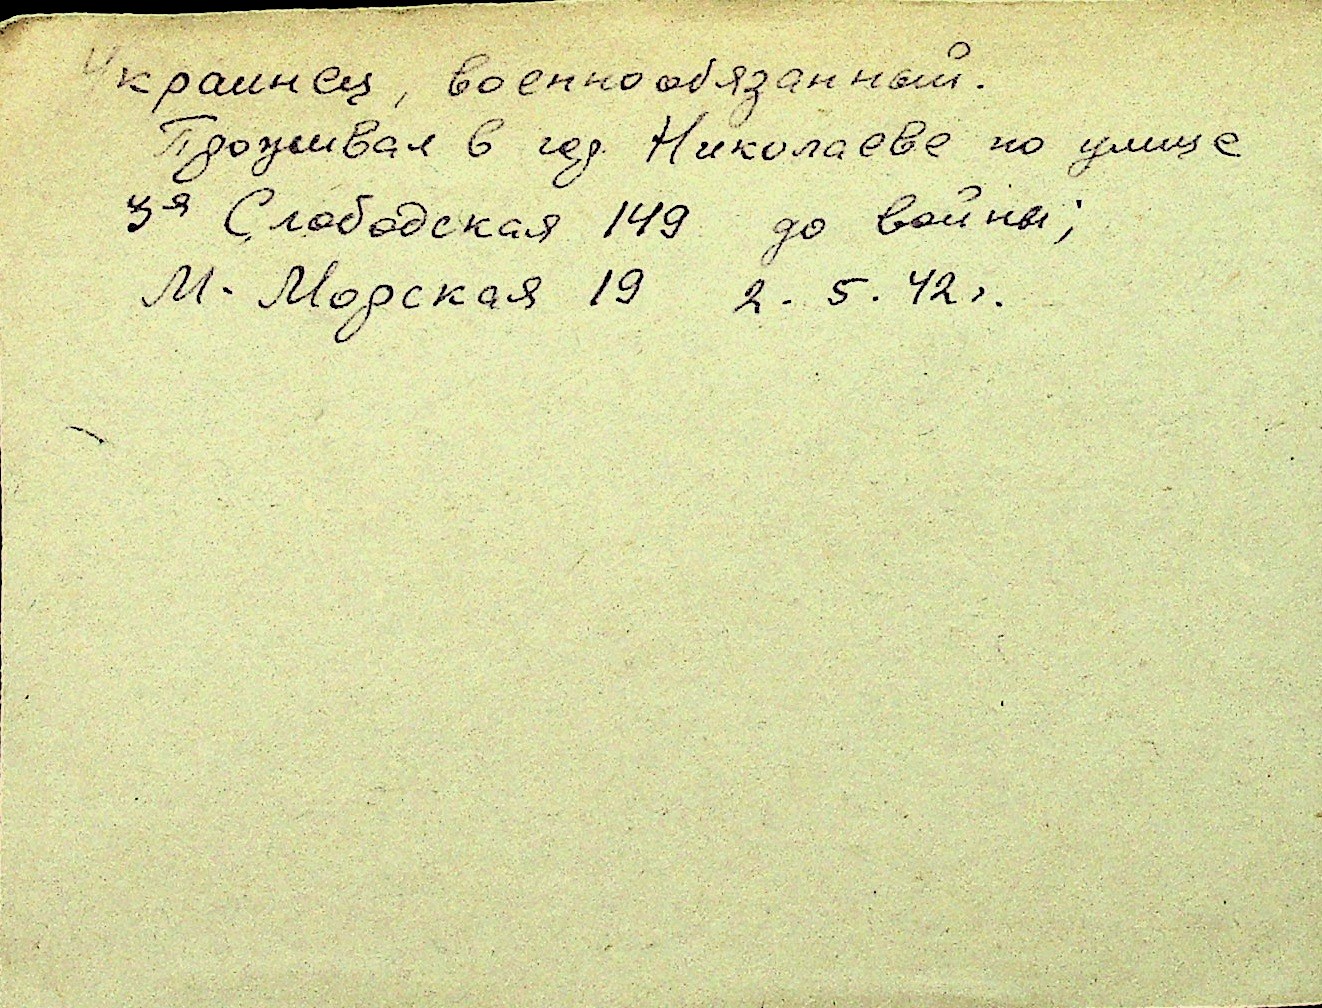 Украинец, военнообязанный.
Проживал в гор. Николаеве по улице
3я Слободская 149 до войны;
М. Морская 19 2. 5. 42 г.